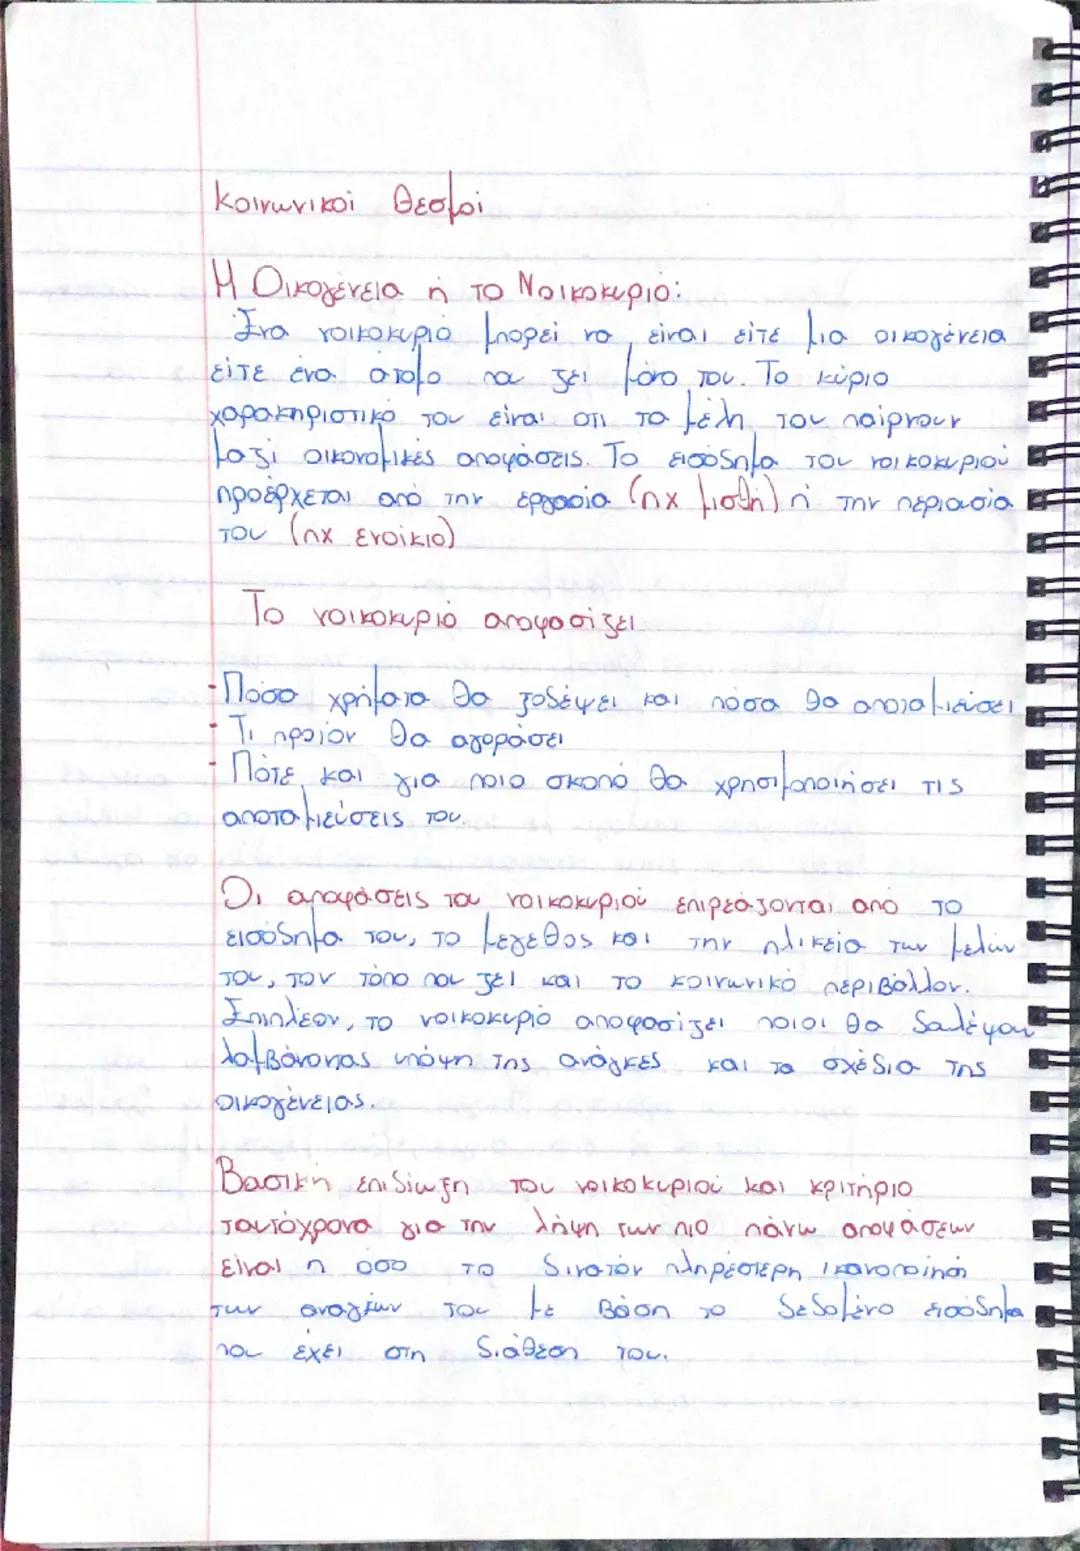 Κοινωνικοί θεσμοί
Η Οικογένεια ή το Νοικοκυριό:
Ένα νοικοκυριό μπορεί να είναι είτε μια οικογένεια
είτε ένα άτομο που ζει μόνο του. Το κύριο
χαρακτηριστικό του είναι ότι τα μέλη του παίρνουν
μαζί οικονομικές αποφάσεις. Το εισόδημα του νοικοκυριού
προέρχεται από την εργασία (πχ μισθή) ή την περιουσία
του (πχ ενοίκιο)
Το νοικοκυριό αποφασίζει
- Πόσα χρήματα θα ξοδέψει και πόσα θα αποταμιεύσει
- Τι προϊόν θα αγοράσει
- Πότε και για ποιο σκοπό θα χρησιμοποιήσει τις
αποταμιεύσεις του.
Οι αποφάσεις του νοικοκυριού επιρεάζονται από το
εισόδημα του, το μέγεθος και την ηλικεία των μελών
του, τον τόπο που ζει και το κοινωνικό περιβάλλον.
Επιπλέον, το νοικοκυριό αποφασίζει ποιοι θα δουλέψουν
λαμβάνοντας υπόψη της ανάγκες και τα σχέδια της
οικογένειας.
Βασική επιδίωξη του νοικοκυριού και κριτήριο
ταυτόχρονα για την λήψη των πιο πάνω αποφάσεων
είναι η όσο το δυνατόν πληρέστερη ικανοποίηση
των αναγκών του με βάση το δεδομένο εισόδημα
που έχει στη διάθεση του.